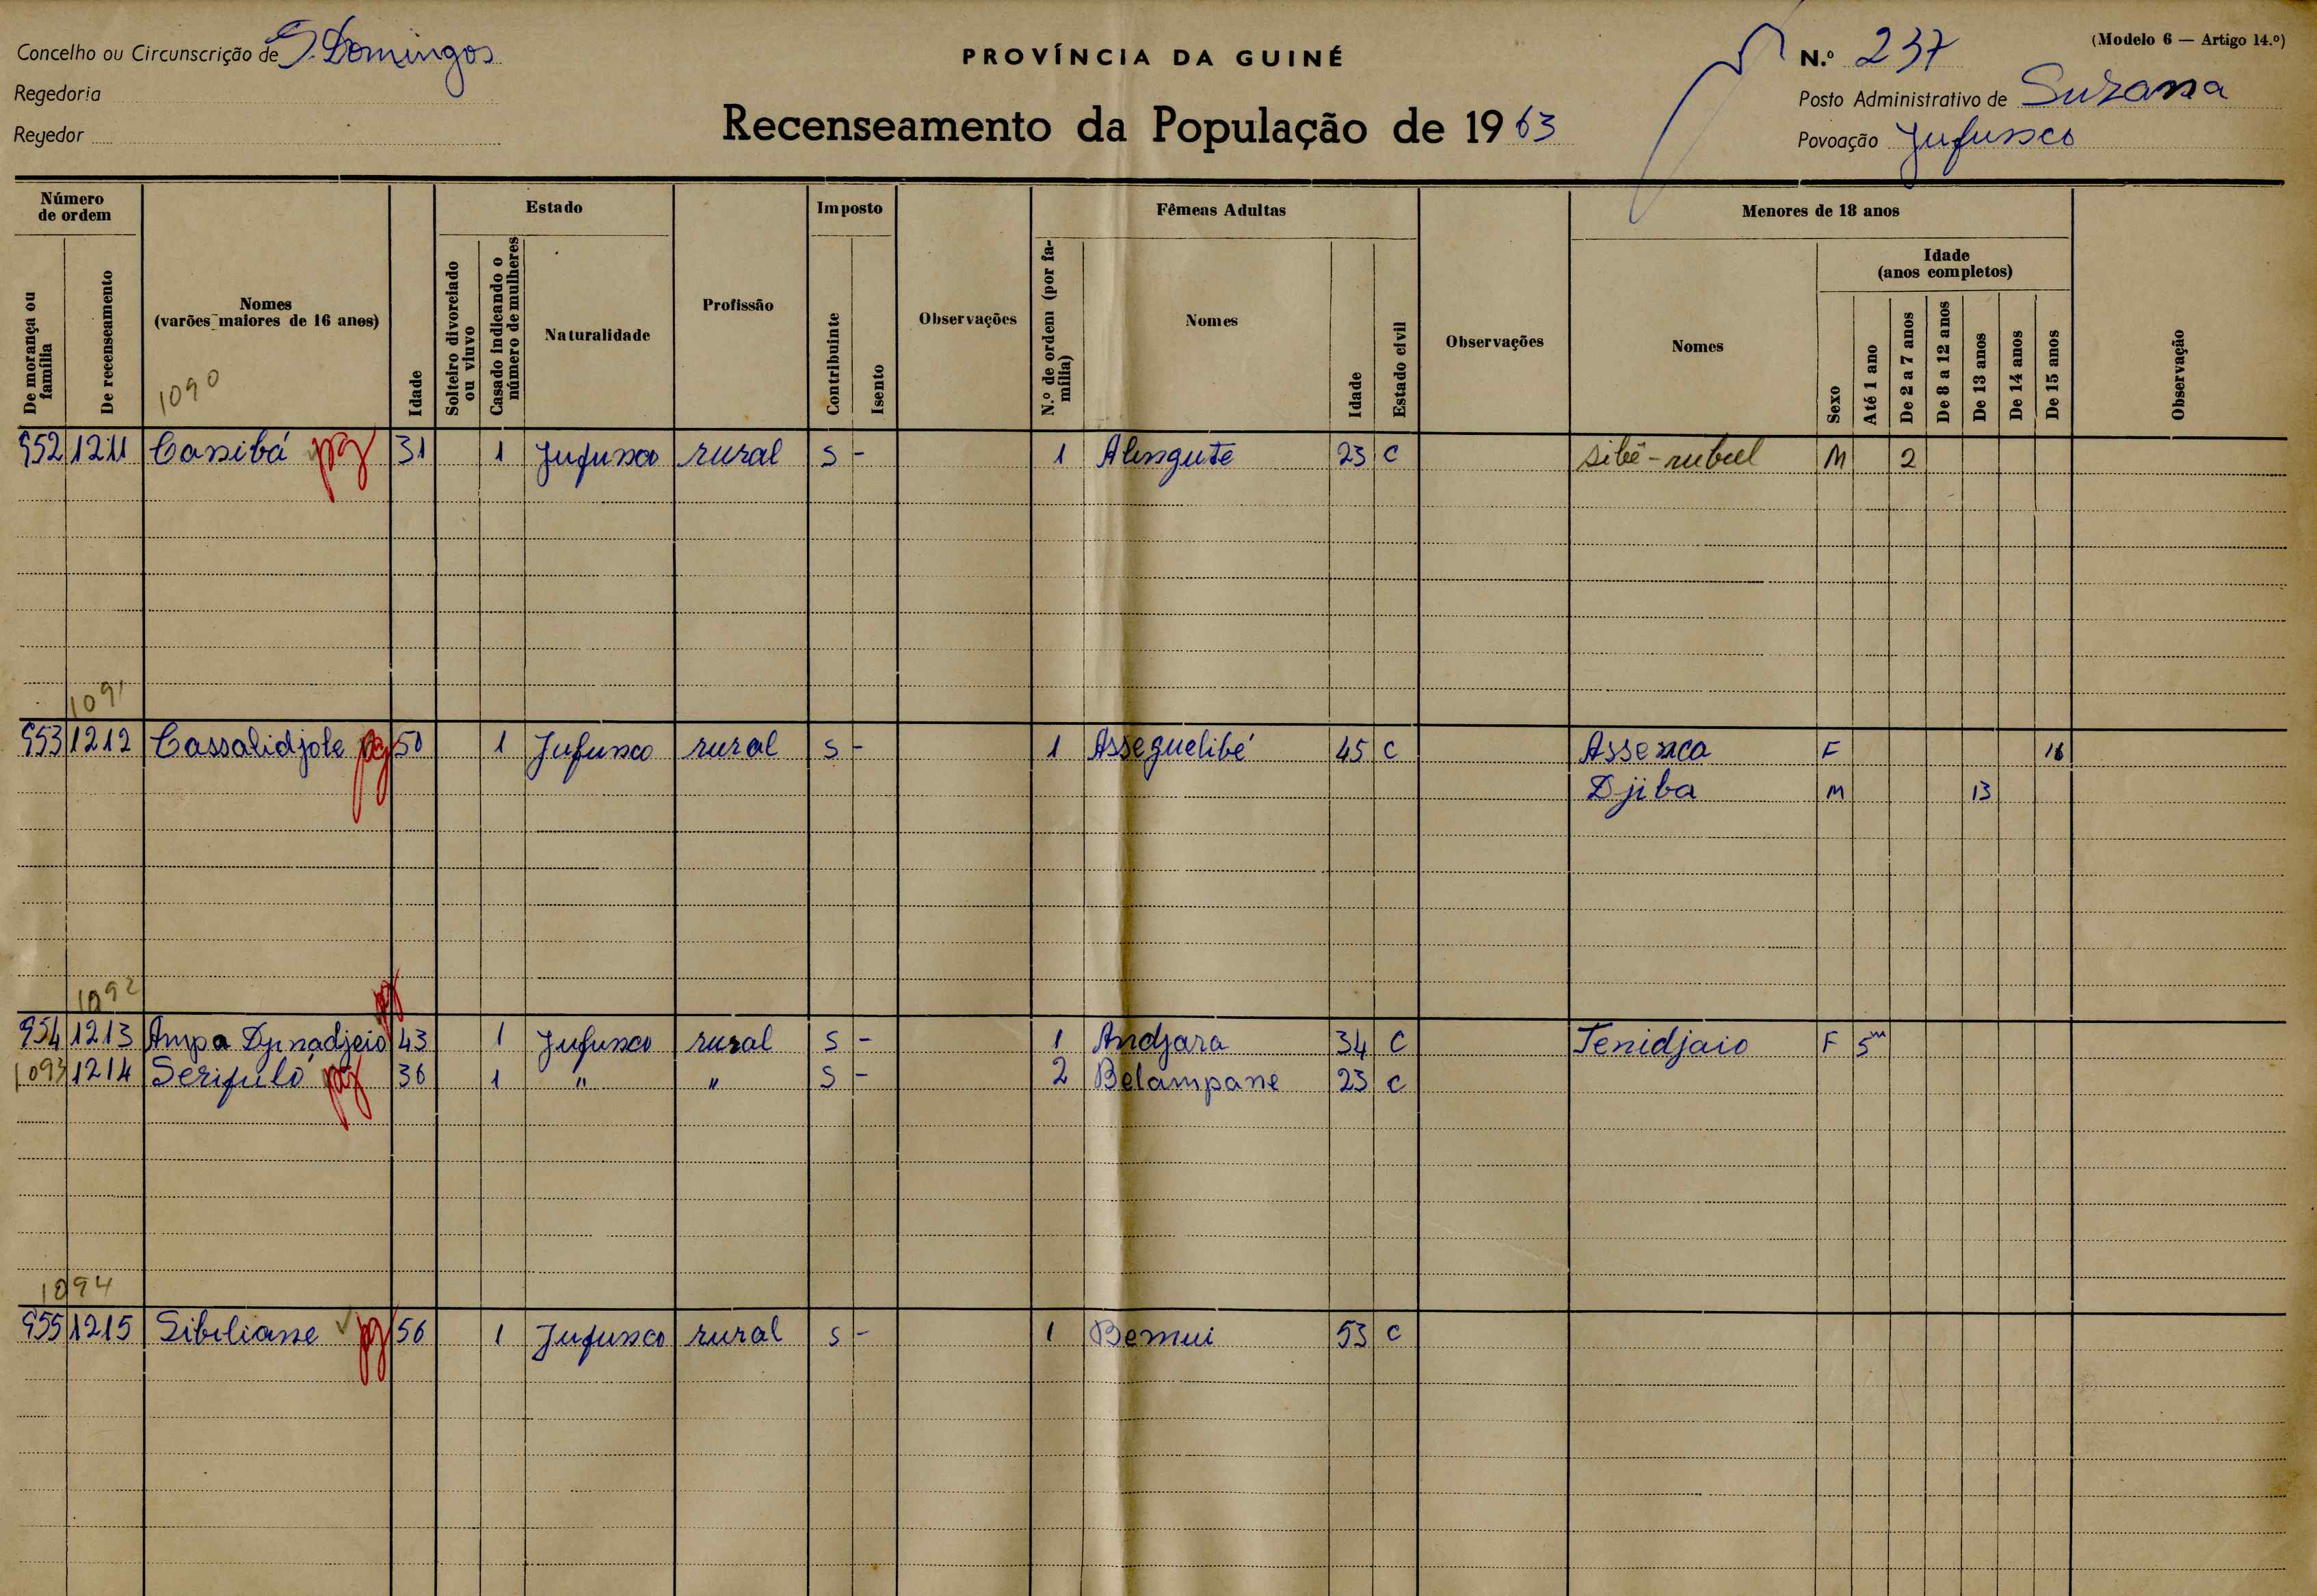 Concelho ou Circunscrição de S. Domingos
PROVÍNCIA DA GUINÉ
N.º 237
(Modelo 6 — Artigo 14.º)
Regedoria
Posto Administrativo de Suzana
Regedor
Recenseamento da População de 1963
Povoação Jufunco
Número de ordem
Estado
Imposto
Fêmeas Adultas
Menores de 18 anos
De morança ou família
De recenseamento
Nomes (varões maiores de 16 anos)
Idade
Solteiro divorciado ou viuvo
Casado indicando o número de mulheres
Naturalidade
Profissão
Contribuinte
Isento
Observações
N.º de ordem (por família)
Nomes
Idade
Estado civil
Observações
Nomes
Sexo
Idade (anos completos)
Até 1 ano
De 2 a 7 anos
De 8 a 12 anos
De 13 anos
De 14 anos
De 15 anos
Observação
1090
952 1211 Cassibá pg 31 1 Jufunco rural s - 1 Alengute 23 C M 2
1091
953 1212 Cassalidjole pg 50 1 Jufunco rural s - 1 Asseguelibé 45 C Assenca F 16
Djiba M 13
1092 pg
954 1213 Ampa Djinadjeió 43 1 Jufunco rural s - 1 Andjara 34 C Tenidjaio F 5m
1093 1214 Serifuló pg 36 1 " " s - 2 Belampane 23 C
1094
955 1215 Sibiliane pg 56 1 Jufunco rural s - 1 Bemui 53 C